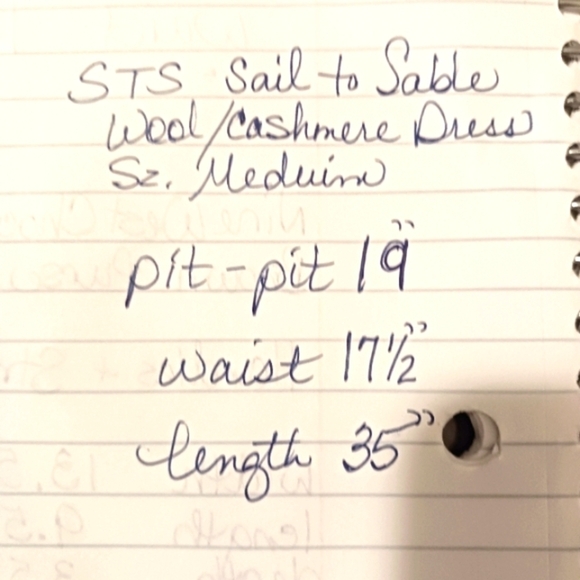 STS Sail to Sable
Wool/Cashmere Dress
Sz. Meduim
pit-pit 19"
waist 17 1/2"
length 35"